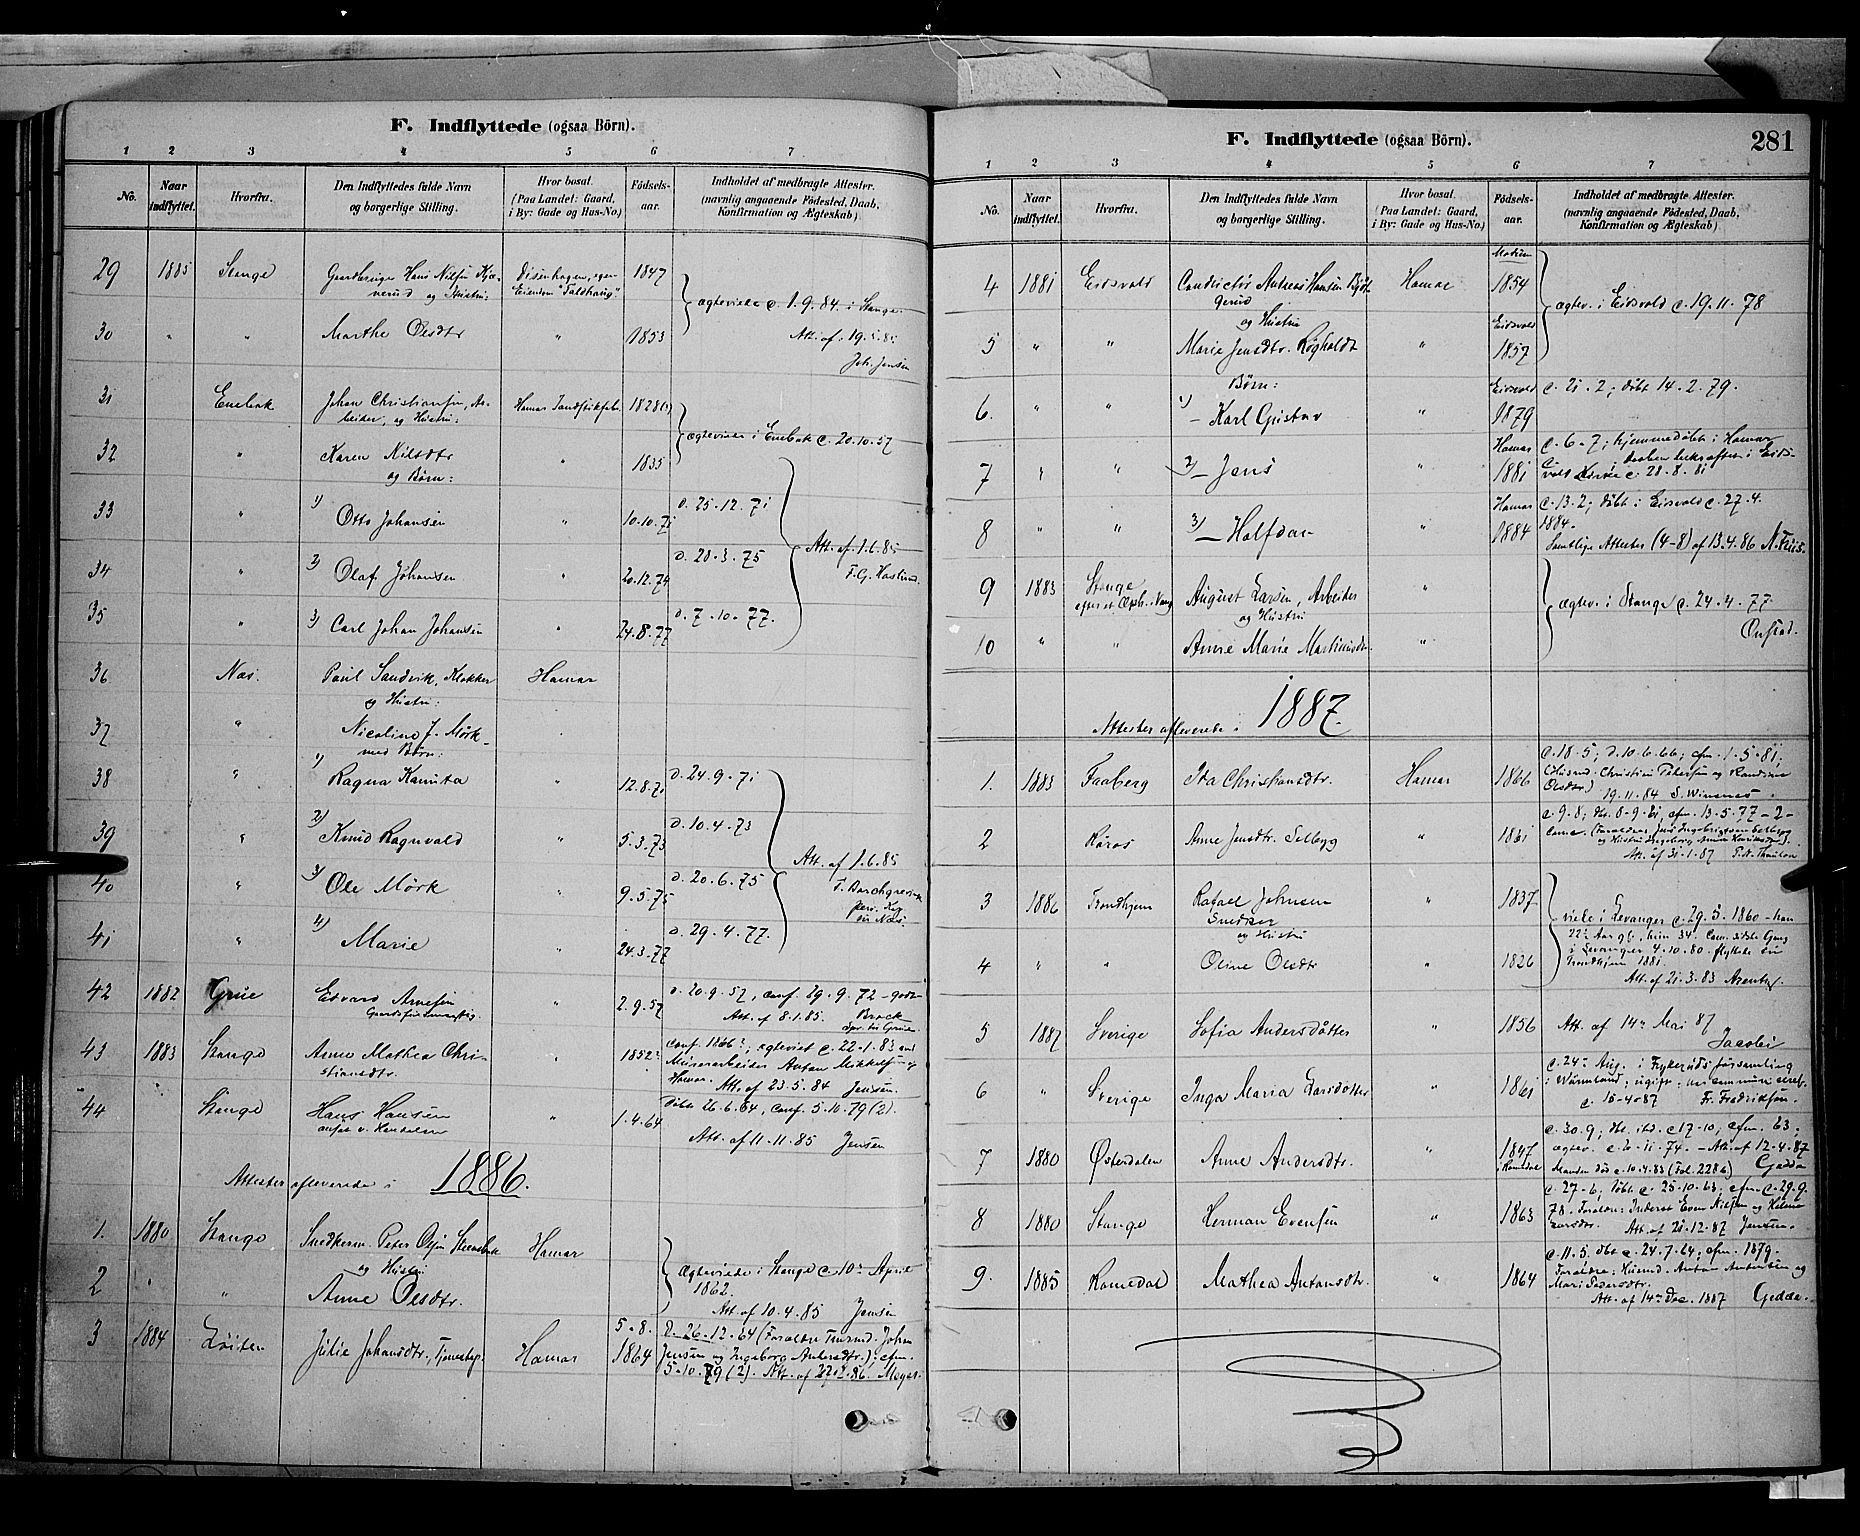 F. Indflyttede (ogsaa Börn).
1 2 3 4 5 6 7
No. Naar indflyttet. Hvorfra. Den Indflyttedes fulde Navn og borgerlige Stilling. Hvor bosat. (Paa Landet: Gaard, i By: Gade og Hus-No.) Födsels-aar. Indholdet af medbragte Attester. (navnlig angaaende Födested, Daab, Konfirmation og Ægteskab)
29 1885 Stange Gaardbruger Hans Nilsen 1847
og Hustru:
ægteviede d. 1.9.84 i Stange.
30 " " Marthe Olsdtr 1853 Att. af 19.5.85
Joh. Jensen
31 Enebak Johan Christiansen, Ar-
beider, og Hustru: Hamar 1828
ægteviede i Enebak d. 20.10.57
32 " Karen Nilsdtr " 1835
og Børn:
33 " 1) Otto Johansen " 10.10.71 d. 25.12.71
Att. af 1.6.85
34 " 2) Olaf Johansen " 20.12.74 d. 28.3.75
F.G.
35 " 3) Carl Johan Johansen " 24.8.77 d. 7.10.77.
36 Næs. Paul Sandvik, Klokker Hamar
og Hustru:
37 " Nicoline J. Mørk
med Børn:
38 " 1) Ragna Kamita " 12.8.71 d. 24.9.71
39 " 2) Knud Ragnvald " 5.3.73 d. 10.4.73
Att. af 1.6.85
40 " 3) Ole Mörk " 9.5.75 d. 20.6.75
41 " 4) Marie " 24.3.77 d. 29.4.77.
42 1882 Grue Edvard Arnesen " 2.9.57 d. 20.9.57, conf. 29.9.72 – godt
Att. af 8.1.85. Brock
43 1883 Stange Anne Mathea Chri-
stiansdtr. " 1852 conf. 1866; ægteviet d. 22.1.83 med
Murerarbeider Anton Mikkelsen
Hamar. Att. af 23.5.84 Jensen
44 Stange Hans Hansen " 1.4.64 Døbt 26.6.64, conf. 5.10.79 (2).
Att. af 11.11.85 Jensen
Attester afleverede i 1886.
1. 1880 Stange Snedkerm. Peter Olsen Hamar
og Hustru
Ægteviede i Stange d. 10de April
1862.
2 " " Anne Olsdtr. Att. af 10.4.85 Jensen
3 1884 Løiten Julie Johansdtr., Tjenestep. Hamar 5.8.
1864 D. 26.12.64 (Forældre Johan
Jensen og Ingeborg Andersdtr.); cfm.
5.10.79 (2). Att. af 86.
281
F. Indflyttede (ogsaa Börn).
1 2 3 4 5 6 7
No. Naar indflyttet. Hvorfra. Den Indflyttedes fulde Navn og borgerlige Stilling. Hvor bosat. (Paa Landet: Gaard, i By: Gade og Hus-No.) Födsels-aar. Indholdet af medbragte Attester. (navnlig angaaende Födested, Daab, Konfirmation og Ægteskab)
Modum
4 1881 Eidsvold Conductør Andreas Hansen Hamar 1854
og Hustru
ægtev. i Eidsvold d. 19.11.78
Eidsvold
5 " " Marie Jensdtr. Røgholdt " 1857
Børn:
6. " " 1) – Karl Gustav " Eidsvold 1879 d. 21.2; døbt 14.2.79.
7 " " 2) – Jens " Hamar 1881 d. 6.7; hjemmedøbt i Hamar
Daaben bekræftet i Eids-
vold Kirke d. 28.8.81
8 " " 3) – Halfdan " Hamar 1884 d. 13.2; døbt i Eidsvold d. 27.4.
1884.
Samtlige Attester (4–8) af 13.4.86 N. Friis.
9 1883 Stange August Larsen, Arbeider "
og Hustru
ægtev. i Stange d. 24.4.77
10 " " Anne Marie Martinusdtr. "
Attester afleverede i 1887.
1. 1883 Faaberg Ida Christiansdtr. Hamar 1866 d. 18.5; d. 10.6.66; cfm. 1.5.81;
(Husmd. Christian Petersen og Randine
Olsdtr.) 19.11.84 S. Winsnes.
2 Røros Anne Jensdtr. Selbyg " 1861 d. 9.8; dbt. 8.9.61, cfm. 13.5.77 – 2 –
Att. af 31.1.87
3 1886 Trondhjem Rafael Johnsen
Snedker
og Hustru " 1837 viede i Levanger d. 29.5.1860 – han
22 Aar gl., hun 34. Com. sidste Gang
i Levanger 4.10.80. flyttede til
Trondhjem 1881.
4 " " Oline Olsdtr " 1826 Att. af 21.3.83
5 1887 Sverige Sofia Andersdotter " 1856 Att. af 14de Mai 87
Jacobi
6 " Sverige Inga Maria Larsdotter " 1861 d. 24de Aug. i Frykeruds församling
i Wärmland; ugift;
d. 15-4-87 Fr. Fredriksson.
7 1880 Østerdalen Anne Andersdtr. " 1847
i Romedal d. 30.9; dbt. ibd. d. 17.10; cfm. 63.
ægtev. d. 6.11.74. – Att. af 12.4.87
Manden død d. 10.4.83 (Fol. 228 6) Gedde
8 1880 Stange Herman Evensen " 1863 d. 27.6; døbt d. 25.10.63; cfm. d. 29.9.
78. Forældre: Inderst Even Nielsen og Helene
Larsdtr. Att. af 21.12.87 Jensen.
9. 1885 Romedal Mathea Antonsdtr. " 1864 d. 11.5. dbt d. 24.7.64; cfm. 1879.
Forældre: Husmd. Anton Andersen og
Mari Pedersdtr.
Att. af 14de Dec. 1887 Gedde.